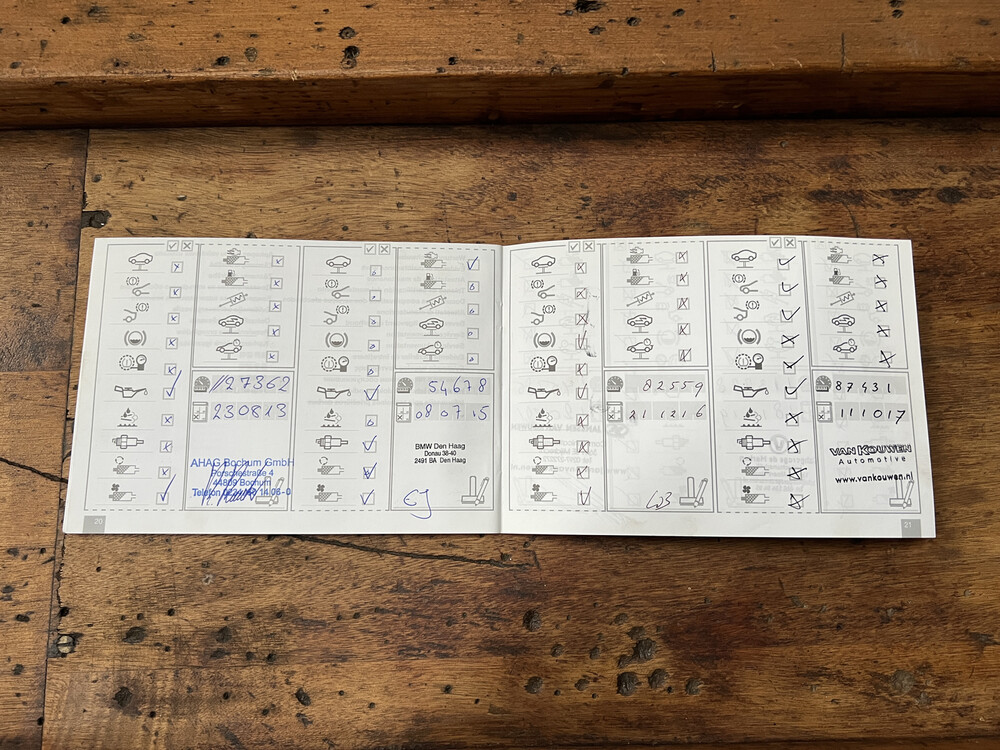 //27362
230813
AHAG Bochum GmbH
Porschestraße 4
44809 Bochum
20
54678
080715
BMW Den Haag
Donau 38-40
2491 BA Den Haag
EJ
82559
211216
87431
111017
VAN KOUWEN
Automotive
www.vankouwen.nl
21